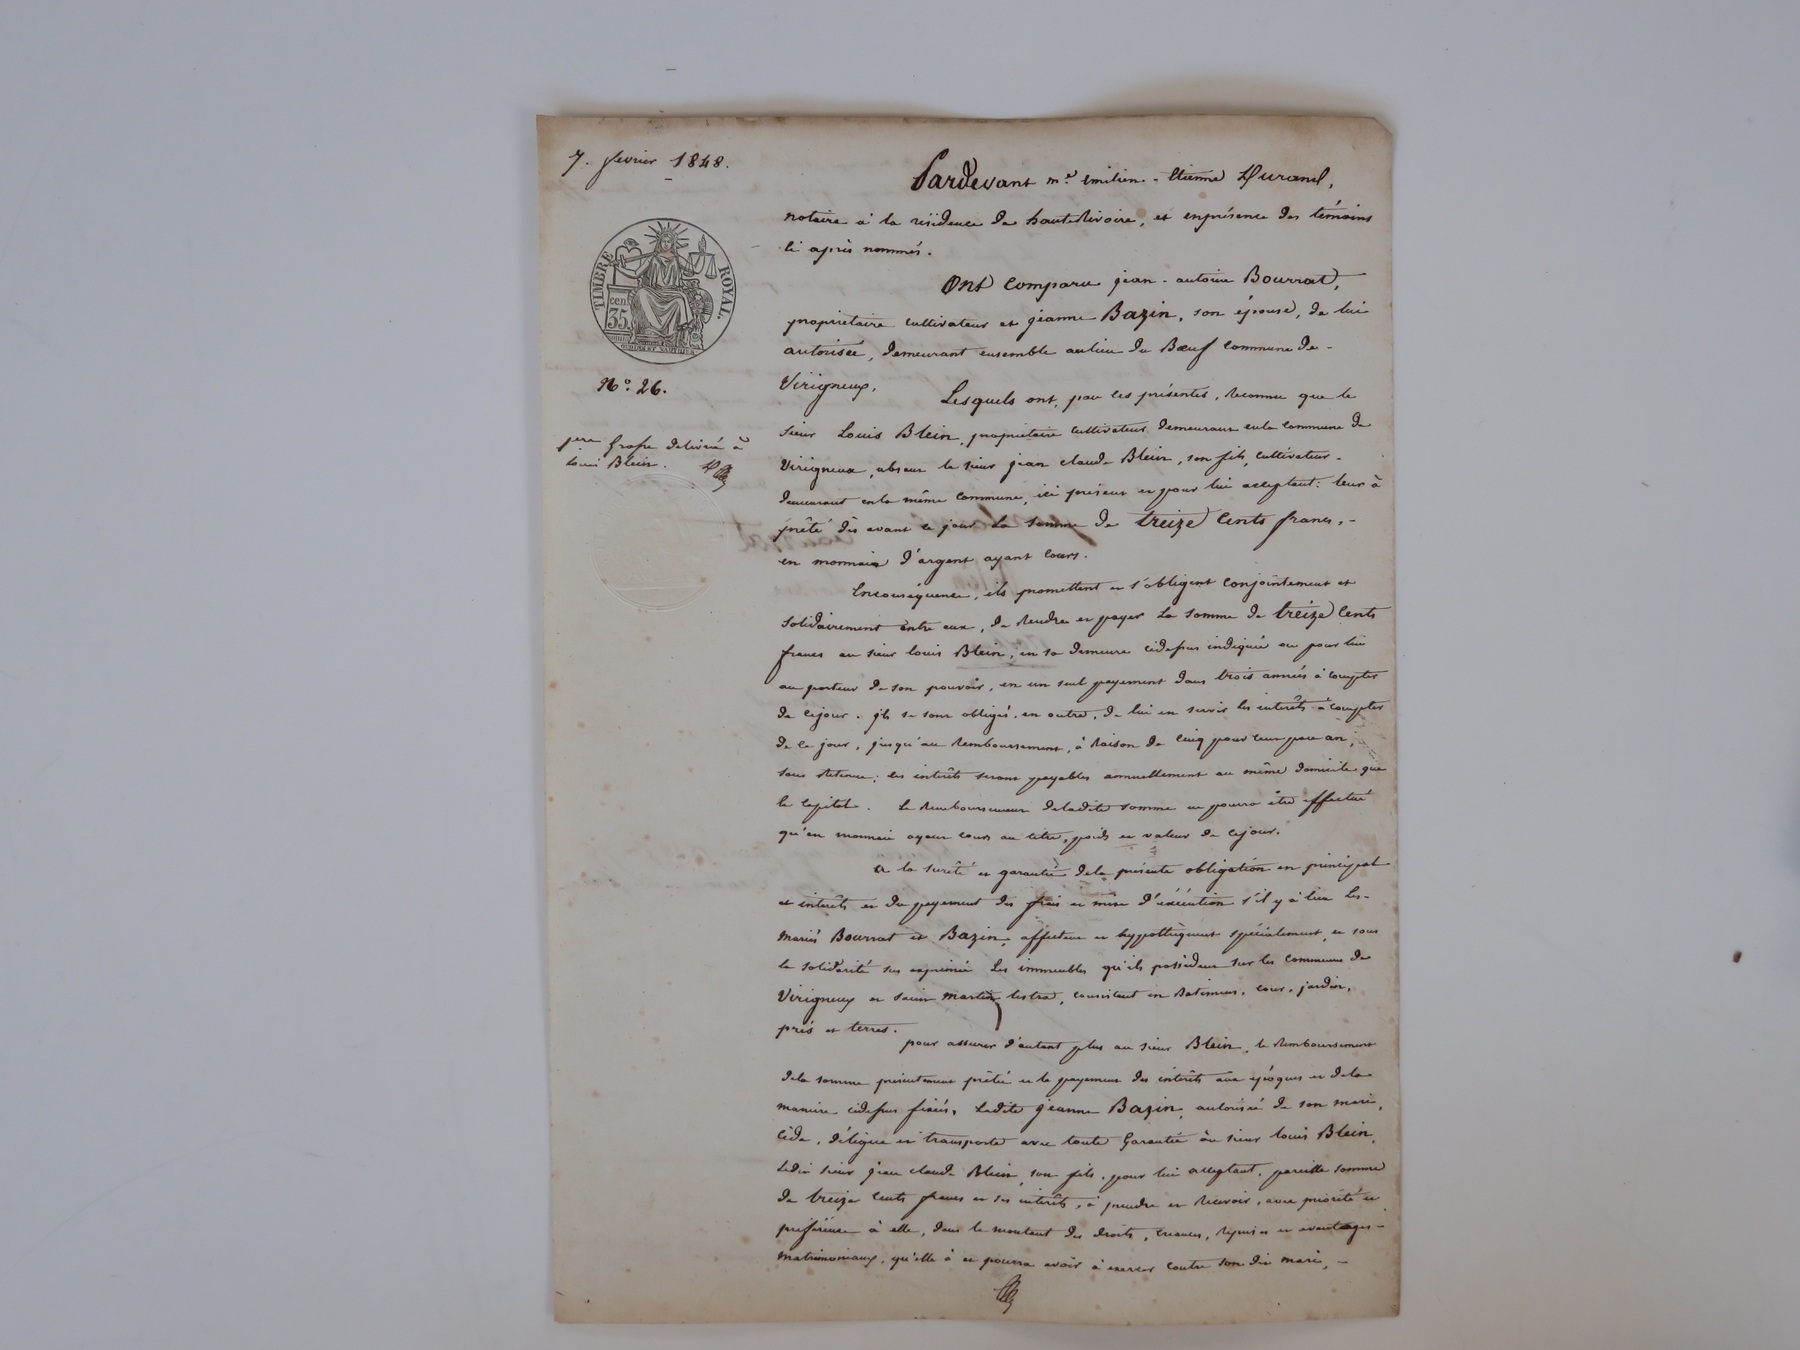 7. fevrier 1848.
TIMBRE ROYAL.
cen.
35.
N.º 26.
1ere Grosse délivrée à
Louis Blein.
Pardevant m.e emilien - Etienne Durand,
notaire à la résidence de hauterivoire, et enprésence des témoins
ci après nommés.
Ont comparu jean - antoine Bourrat,
propriétaire cultivateur et jeanne Bazin, son épouse, de lui
autorisée, demeurant ensemble aulieu du Bœuf commune de -
Virigneux.
Lesquels ont, par ces présentes, reconnu que le
sieur Louis Blein, propriétaire cultivateur demeurant enla commune de
Virigneux, absent le sieur jean claude Blein, son fils, cultivateur -
demeurant enla même commune, ici présent et pour lui acceptant: leur à
prêté dès avant ce jour la somme de treize Cents francs, -
en monnaie d'argent ayant cours.
Enconséquence, ils promettent et s'obligent conjointement et
solidairement entre eux, de rendre et payer la somme de treize Cents
francs au sieur louis Blein, en sa demeure cidessus indiquée ou pour lui
au porteur de son pouvoir, en un seul payement dans trois années à compter
de cejour. ils se sont obligés, en outre, de lui en servir les intérêts à compter
de ce jour, jusqu'au remboursement, à raison de cinq pour cent par an,
sans retenue; les intérêts seront payables annuellement au même domicile que
le capital. Le remboursement deladite somme ne pourra être effectué
qu'en monnaie ayant cours au titre, poids et valeur de cejour.
à la sureté et garantie dela présente obligation en principal
et intérêts et du payement des frais et mise d'éxécution s'il y à lieu Les -
mariés Bourrat et Bazin, affectent et hypothèquent spécialement, et sous
la solidarité sus exprimée Les immeubles qu'ils possèdent sur les communes de
Virigneux et saint martin lestra, consistant en Batimens, cour, jardin,
prés et terres.
pour assurer d'autant plus au sieur Blein, le remboursement
dela somme présentement prêtée et le payement des intérêts aux époques et dela
manière cidessus fixées, Ladite jeanne Bazin, autorisée de son mari,
cède, délègue et transporte avec toute Garantie au sieur louis Blein,
Ledit sieur jean claude Blein, son fils, pour lui acceptant, pareille somme
de treize Cents francs et ses intérêts, à prendre et recevoir, avec priorité et
préférence à elle, dans le montant des droits, créances, reprises et avantages -
matrimoniaux, qu'elle à et pourra avoir à exercer contre son dit mari, -